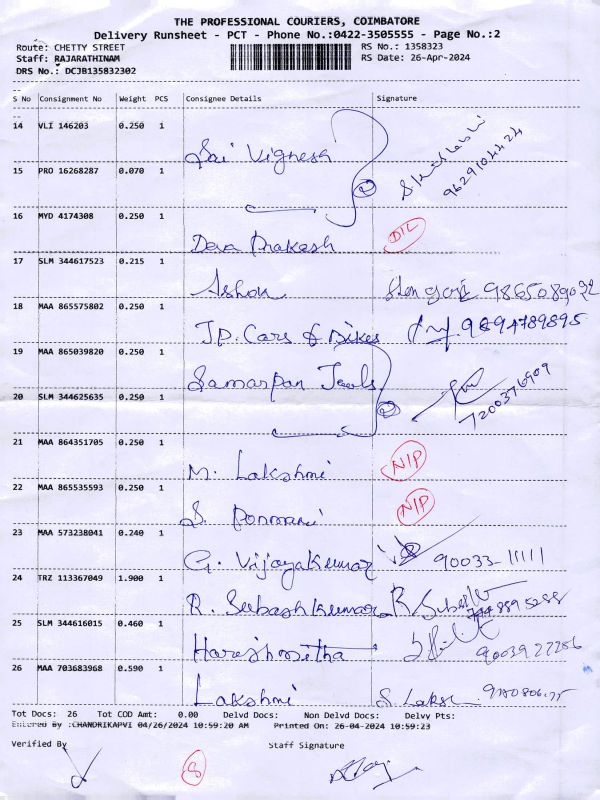 THE PROFESSIONAL COURIERS, COIMBATORE
Delivery Runsheet - PCT - Phone No.:0422-3505555 - Page No.:2
Route: CHETTY STREET RS No.: 1358323
Staff: RAJARATHINAM RS Date: 26-Apr-2024
DRS No.: DCJB135832302
S No Consignment No Weight PCS Consignee Details Signature
14 VLI 146203 0.250 1
Sai Vignesh
9629104424
15 PRO 16268287 0.070 1
2
16 MYD 4174308 0.250 1
Deva Prakash D/L
17 SLM 344617523 0.215 1
Ashok 9865089092
18 MAA 865575802 0.250 1
J.P. Cars & Bikes 9894789895
19 MAA 865039820 0.250 1
Samarpan Tools
7200376909
20 SLM 344625635 0.250 1
2
21 MAA 864351705 0.250 1
M. Lakshmi N/P
22 MAA 865535593 0.250 1
S. Ponmani N/P
23 MAA 573238041 0.240 1
G. Vijayakumar 90033-11111
24 TRZ 113367049 1.900 1
R. Subash Kumar
25 SLM 344616015 0.460 1
Hareshmitha 9003927286
26 MAA 703683968 0.590 1
Lakshmi
Tot Docs: 26 Tot COD Amt: 0.00 Delvd Docs: Non Delvd Docs: Delvy Pts:
Entered By :CHANDRIKAPVI 04/26/2024 10:59:20 AM Printed On: 26-04-2024 10:59:23
Verified By Staff Signature
8